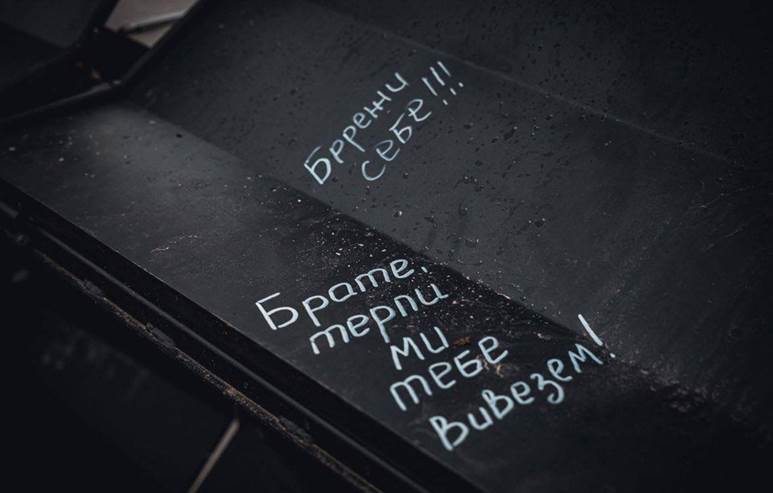 Бррежи
СЕБЕ!!!
Брате,
терпи
ми
тебе
вивеземо!